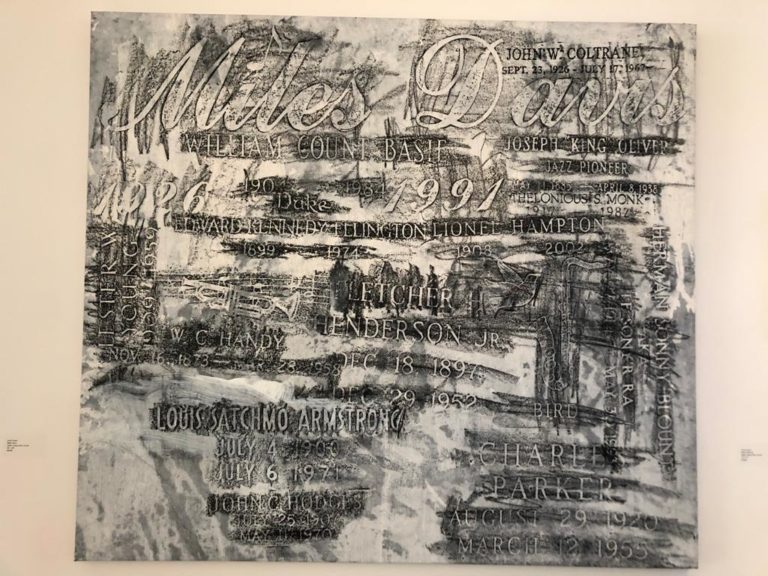 Miles Davis
JOHN W. COLTRANE
SEPT. 23, 1926 - JULY 17, 1967
WILLIAM COUNT BASIE
JOSEPH "KING" OLIVER
JAZZ PIONEER
1926 1991
APRIL 8, 1938
THELONIOUS S. MONK
1917 1982
Duke
EDWARD KENNEDY ELLINGTON
1899 1974
LIONEL HAMPTON
1908 2002
LESTER W.
YOUNG
1959
FLETCHER
HENDERSON JR.
DEC 18 1897
DEC 29 1952
W C HANDY
NOV. 16, 1873
HERMAN SONNY BLOUNT
SONER RA
MAY 30
BIRD
LOUIS SATCHMO ARMSTRONG
JULY 4 1900
JULY 6 1971
JOHN C. HODGES
JULY 25
MAY 11 1970
CHARLIE
PARKER
AUGUST 29 1920
MARCH 12 1955